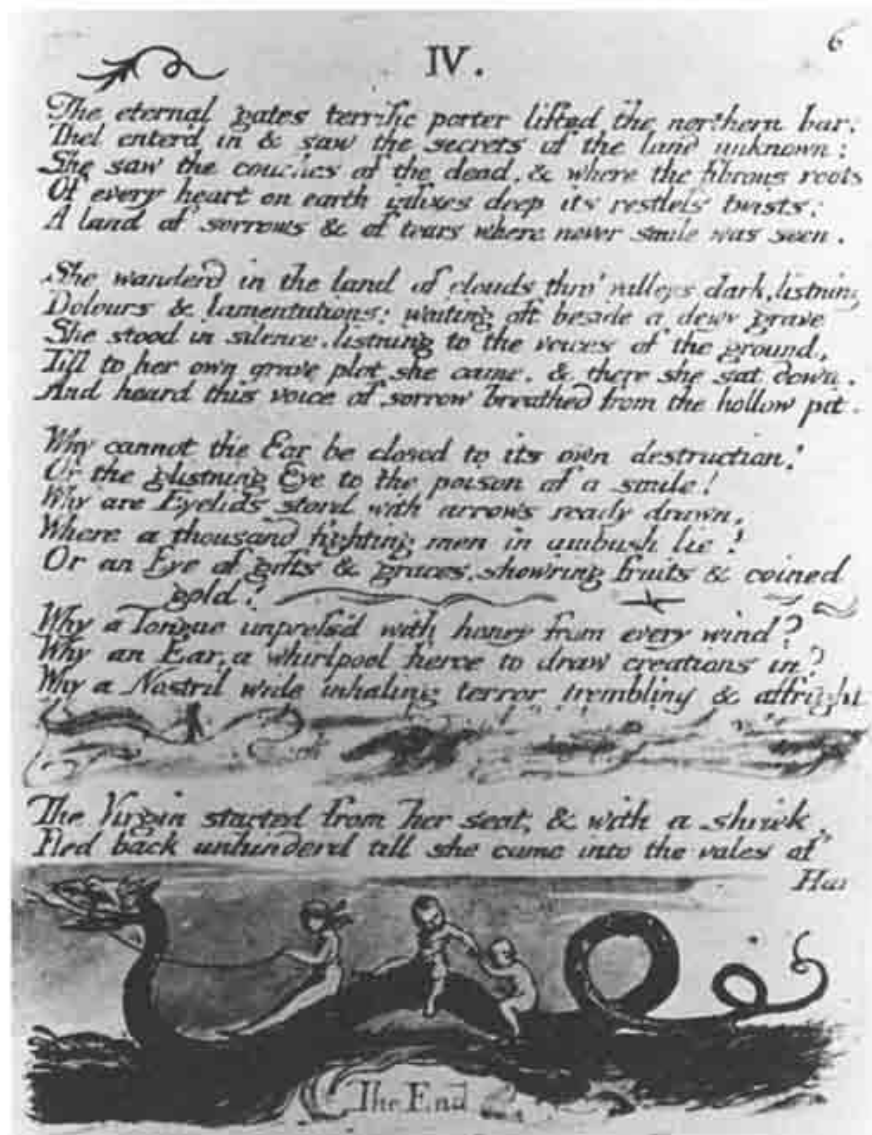 6
IV.
The eternal gates terrific porter lifted the northern bar:
Thel enter'd in & saw the secrets of the land unknown:
She saw the couches of the dead, & where the fibrous roots
Of every heart on earth infixes deep its restleſs twists:
A land of sorrows & of tears where never smile was seen.
She wanderd in the land of clouds thro' valleys dark, listning
Dolours & lamentations: waiting oft beside a dewy grave
She stood in silence, listning to the voices of the ground,
Till to her own grave plot she came, & there she sat down.
And heard this voice of sorrow breathed from the hollow pit.
Why cannot the Ear be closed to its own destruction!
Or the glistning Eye to the poison of a smile!
Why are Eyelids stord with arrows ready drawn,
Where a thousand fighting men in ambush lie!
Or an Eye of gifts & graces, showring fruits & coined
gold!
Why a Tongue impreſs'd with honey from every wind?
Why an Ear, a whirlpool fierce to draw creations in?
Why a Nostril wide inhaling terror trembling & affright
The Virgin started from her seat, & with a shriek
Fled back unhinderd till she came into the vales of
Har
The End